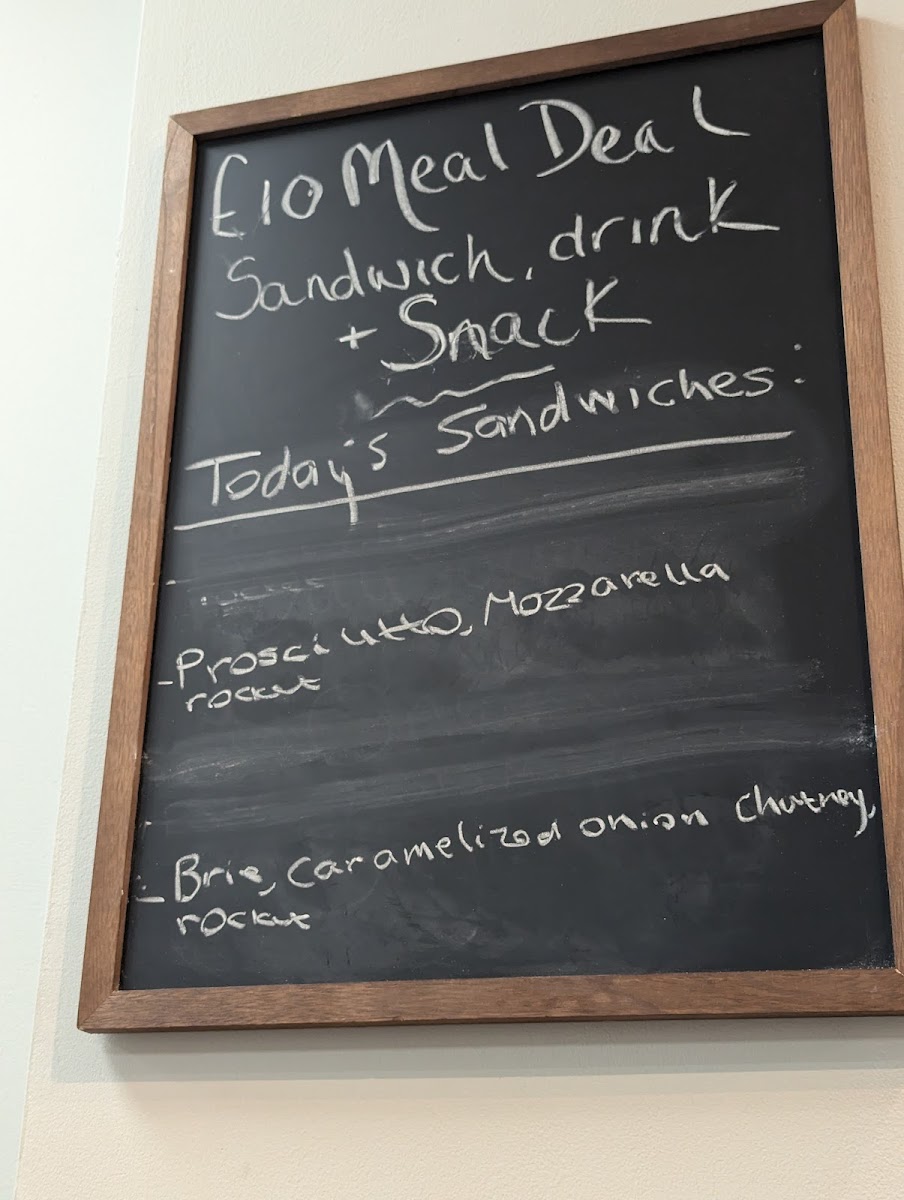 £10 Meal Deal
Sandwich, drink
+ Snack
Today's Sandwiches:
- Prosciutto, Mozzarella
rocket
- Brie, caramelized onion chutney,
rocket